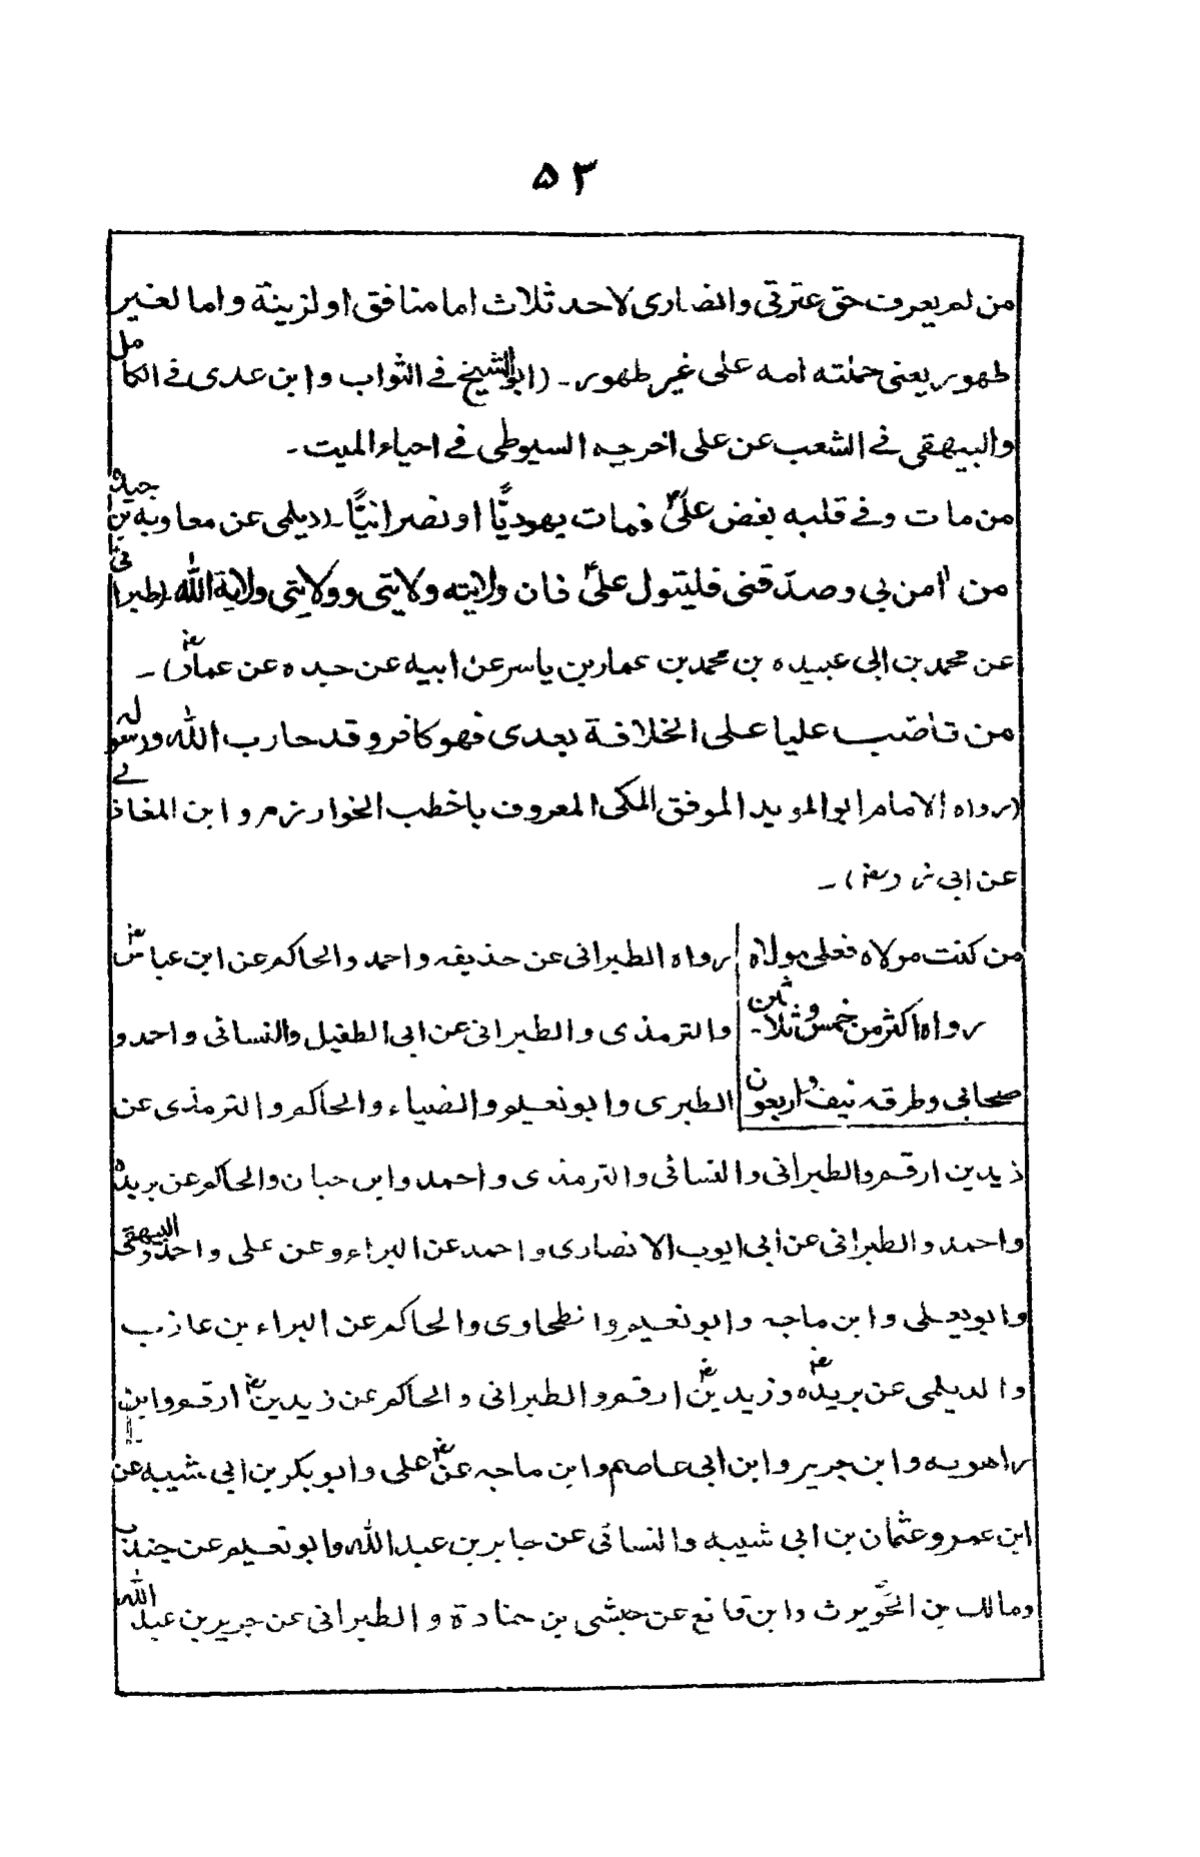 ۵۳
من لم يعرف حق عترتي وانصاری لاحد ثلاث اما منافق او لزينة واما لغير
طهور يعنی حملته امه علی غير طهور ـ (ابو الشيخ فے الثواب وابن عدی فے الكامل
والبيهقی فے الشعب عن علی اخرجه السيوطی فے احياء الميت ـ
من مات وفے قلبه بغض علیؑ فمات يهوديًّا او نصرانيًّا ـ (ديلمی عن معاوية بن حيدہ
من اٰمن بی وصدّقنی فليتول علیؑ فان ولايته ولايتی وولايتی ولاية اللّٰه ـ (طبرانی
عن محمد بن ابی عبيده بن محمد بن عمار بن ياسر عن ابيه عن جده عن عمارؓ) ـ
من ناصب عليا علی الخلافة بعدی فهو كافر وقد حارب اللّٰه ورسوله
(رواه الامام ابو المويد الموفق المكی المعروف باخطب الخوارزم وابن المغازلے
عن ابی ذرؓ) ـ
من كنت مولاه فعلی مولاه
رواه اكثر من خمس وثلاثين
صحابی وطرقه نيف واربعون
رواه الطبرانی عن حذيفه واحمد والحاكم عن ابن عباسؓ
والترمذی والطبرانی عن ابی الطفيل والنسائی واحمد و
الطبری وابو نعيم والضياء والحاكم والترمذی عن
زيد بن ارقم والطبرانی والنسائی والترمذی واحمد وابن حبان والحاكم عن بريدہ
واحمد والطبرانی عن ابی ايوب الانصاری واحمد عن البراء وعن علی واحمد والبيهقی
وابو يعلی وابن ماجه وابو نعيم والطحاوی والحاكم عن البراء بن عازب
والديلمی عن بريدهؓ وزيد بنؓ ارقم والطبرانی والحاكم عن زيد بنؓ ارقم وابن
راهويه وابن جرير وابن ابی عاصم وابن ماجه عنؓ علی وابو بكر بن ابی شيبه عن
ابن عمر وعثمان بن ابی شيبه والنسائی عن جابر بن عبد اللّٰه وابو نعيم عن جندب
ومالك بن الحَوَيرث وابن قانع عن حبشی بن جنادة والطبرانی عن جرير بن عبد اللّٰه